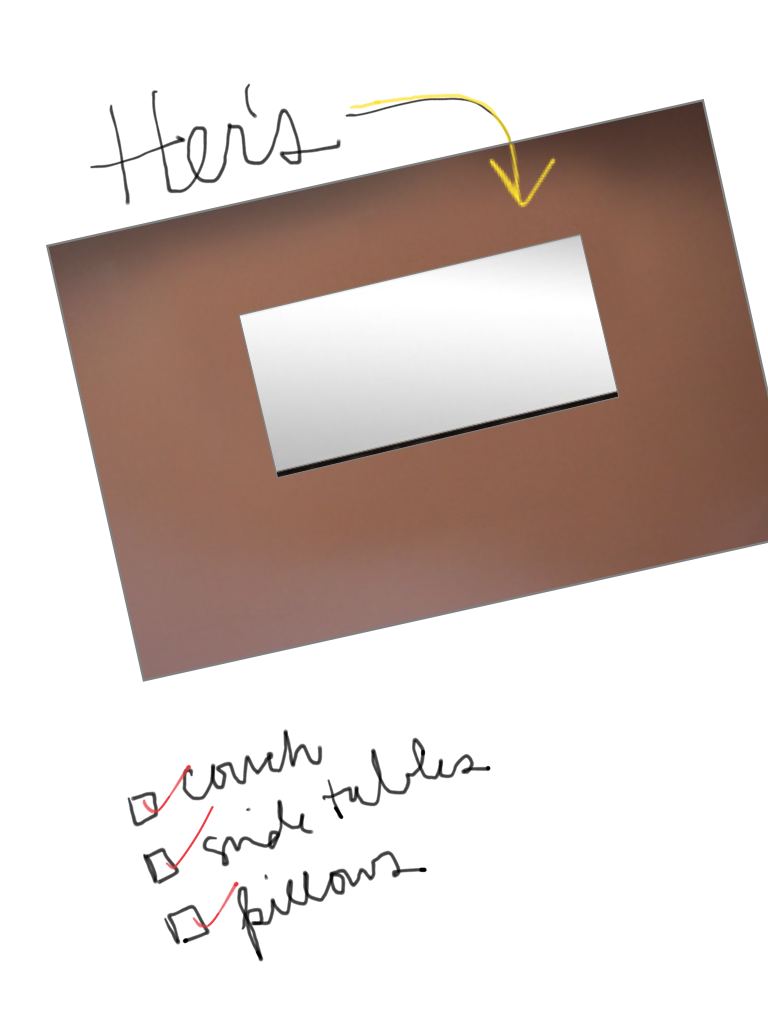 Her's
couch
side tables
pillows